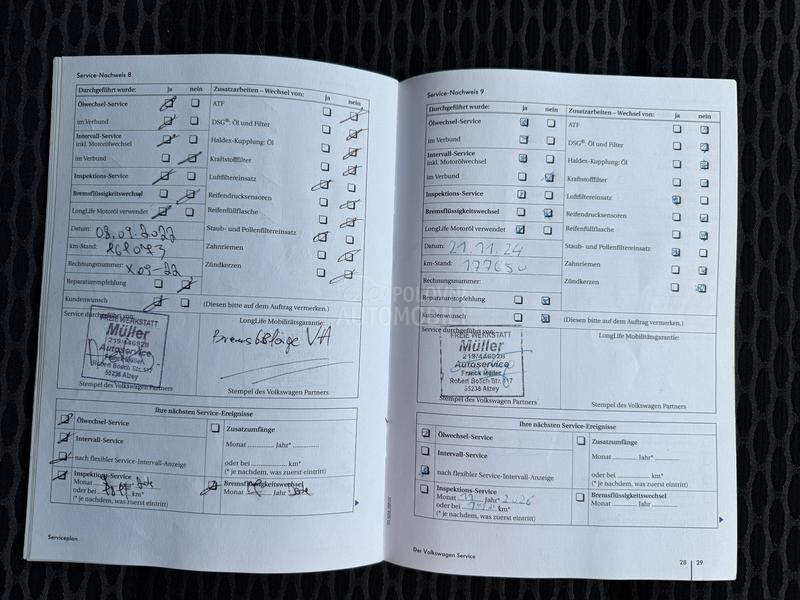 Service-Nachweis 8
Durchgeführt wurde: ja nein Zusatzarbeiten – Wechsel von: ja nein
Ölwechsel-Service ATF
im Verbund DSG®: Öl und Filter
Intervall-Service
inkl. Motorölwechsel Haldex-Kupplung: Öl
im Verbund Kraftstofffilter
Inspektions-Service Luftfiltereinsatz
Bremsflüssigkeitswechsel Reifendrucksensoren
LongLife Motoröl verwendet Reifenfüllflasche
Datum: 08.09.2022 Staub- und Pollenfiltereinsatz
km-Stand: Zahnriemen
Rechnungsnummer: X09-22 Zündkerzen
Reparaturempfehlung
Kundenwunsch (Diesen bitte auf dem Auftrag vermerken.)
Service durchgeführt von: LongLife Mobilitätsgarantie:
FREIE WERKSTATT
Müller
219/446928
Autoservice
Robert Bosch Str.
55238 Alzey
VA
Stempel des Volkswagen Partners Stempel des Volkswagen Partners
Ihre nächsten Service-Ereignisse
Ölwechsel-Service Zusatzumfänge
Intervall-Service Monat Jahr*
nach flexibler Service-Intervall-Anzeige oder bei km*
(* je nachdem, was zuerst eintritt)
Inspektions-Service Bremsflüssigkeitswechsel
Monat Jahr* Monat Jahr
oder bei km*
(* je nachdem, was zuerst eintritt)
Serviceplan
Service-Nachweis 9
Durchgeführt wurde: ja nein Zusatzarbeiten – Wechsel von: ja nein
Ölwechsel-Service ATF
im Verbund DSG®: Öl und Filter
Intervall-Service
inkl. Motorölwechsel Haldex-Kupplung: Öl
im Verbund Kraftstofffilter
Inspektions-Service Luftfiltereinsatz
Bremsflüssigkeitswechsel Reifendrucksensoren
LongLife Motoröl verwendet Reifenfüllflasche
Datum: 21.11.24 Staub- und Pollenfiltereinsatz
km-Stand: 177650 Zahnriemen
Rechnungsnummer: Zündkerzen
Reparaturempfehlung
Kundenwunsch (Diesen bitte auf dem Auftrag vermerken.)
Service durchgeführt von: LongLife Mobilitätsgarantie:
FREIE WERKSTATT
Müller
219/446928
Autoservice
Franck Müller
Robert Bosch Str. 17
55238 Alzey
Stempel des Volkswagen Partners Stempel des Volkswagen Partners
Ihre nächsten Service-Ereignisse
Ölwechsel-Service Zusatzumfänge
Intervall-Service Monat Jahr*
nach flexibler Service-Intervall-Anzeige oder bei km*
(* je nachdem, was zuerst eintritt)
Inspektions-Service Bremsflüssigkeitswechsel
Monat 11 Jahr* 2026 Monat Jahr
oder bei km*
(* je nachdem, was zuerst eintritt)
Der Volkswagen Service
28 29
POLOVNI
AUTOMOBILI